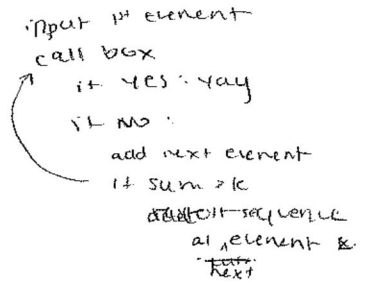 input 1st element
call box
if yes: yay
if no:
add next element
if sum > k
sequence
at element &
next